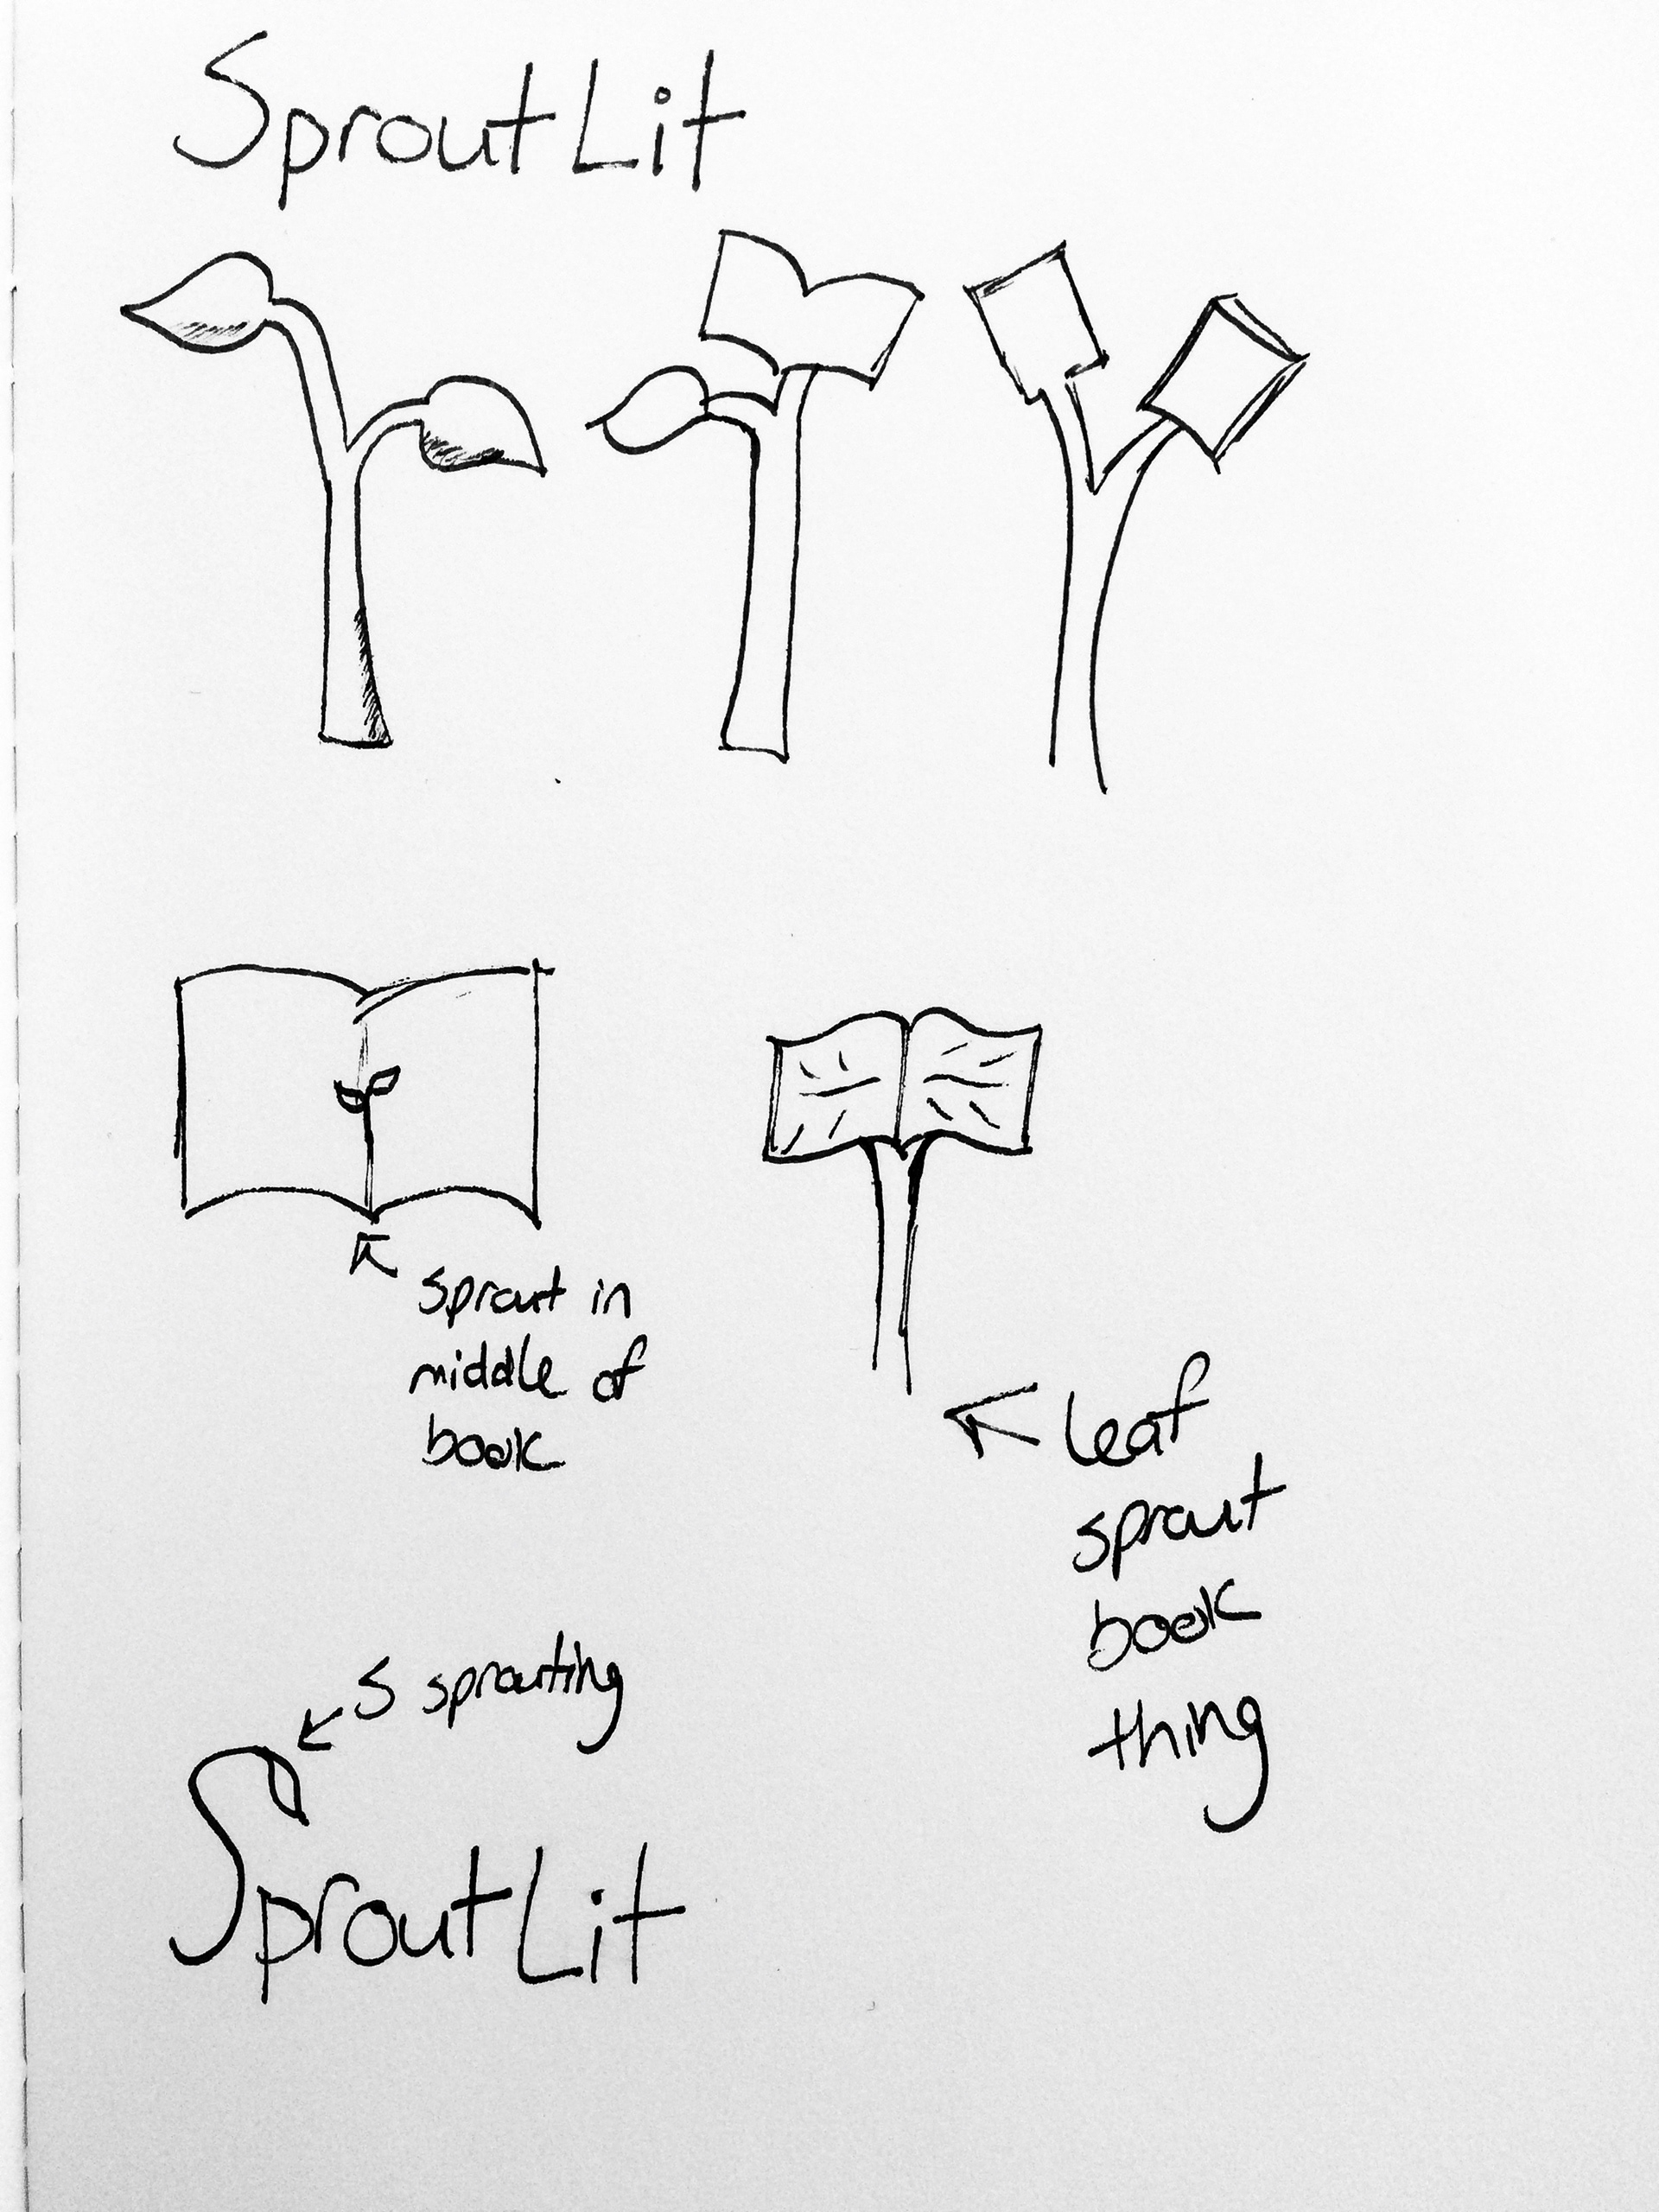 SproutLit
sprout in
middle of
book
leaf
sprout
book
thing
S sprouting
SproutLit